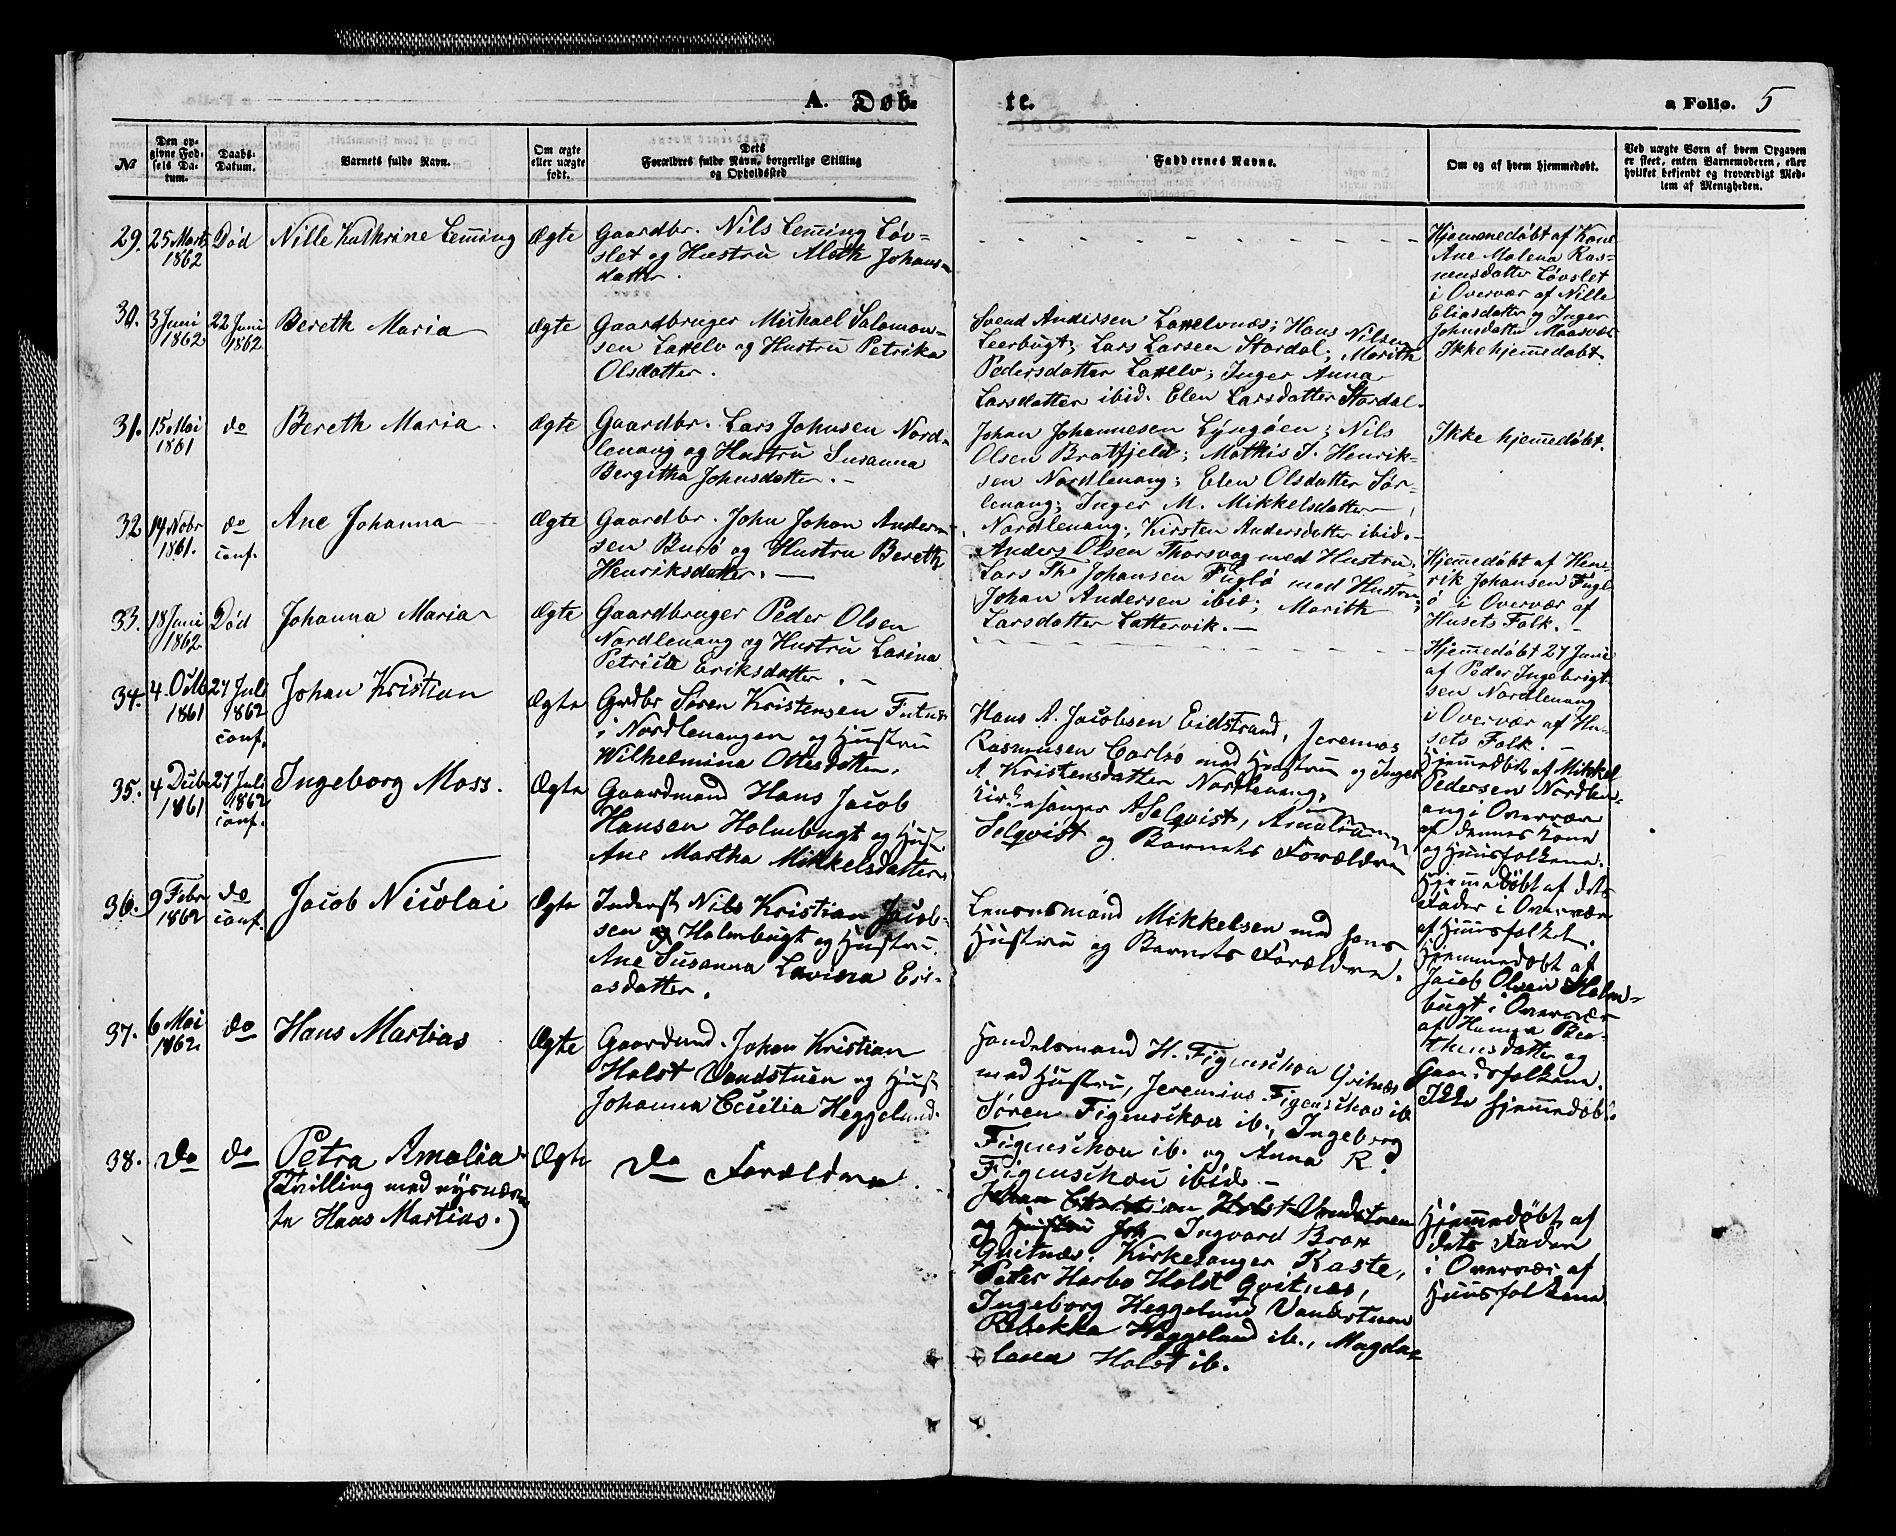 A. Døb-
te.
a Folio. 5
№
Den op-
givne Fød-
sels Da-
tum.
Daabs-
Datum.
Barnets fulde Navn.
Om ægte
eller uægte
født.
Dets
Forældres fulde Navn, borgerlige Stilling
og Opholdssted
Faddernes Navne.
Om og af hvem hjemmedøbt.
Ved uægte Børn af hvem Opgaven
er skeet, enten Barnemoderen, eller
hvilket bekjendt og troværdigt Med-
lem af Menigheden.
29.
25 Marts
1862
Død
Nille Kathrine Leming
Ægte
Gaardbr. Nils Leming Løv-
slet og Hustru Aleth Johans-
datter.
Hjemmedøbt af Kone
Ane Malena Ras-
mensdatter Løvslet
i Overvær af Nille
Eliasdatter og Inger
Johnsdatter Maasvær
30.
3 Juni
1862
22 Juni
1862
Bereth Maria
Ægte
Gaardbruger Mikael Salomon-
sen Laxelv og Hustru Petrika
Olsdatter.
Svend Andersen Laxelvnæs; Hans Nilsen
Leerbugt; Lars Larsen Stordal; Marith
Pedersdatter Laxelv; Inger Anna
Larsdatter ibid. Elen Larsdatter Stordal.
Ikke hjemedøbt.
31.
15 Mai
1861
do
Bereth Maria.
Ægte
Gaardbr. Lars Johnsen Nord-
lenang og Hustru Susanna
Bergitha Johnsdatter. -
Johan Johannesen Lyngøen; Nils
Olsen Bratfjeld; Mathis J. Henrik-
sen Nordlenang; Elen Olsdatter Sør-
lenang; Inger M. Mikkelsdatter
Nordlenang; Kirsten Andersdatter ibid. -
Ikke hjemedøbt.
32
14 Nobr
1861.
do
conf.
Ane Johanna
Ægte
Gaardbr. John Johan Ander-
sen Burø og Hustru Bereth
Henriksdatter. -
Anders Olsen Thorsvag med Hustru;
Lars Ths Johansen Fuglø med Hustru;
Johan Andersen ibid; Marith
Larsdatter Lattervik. -
Hjemedøbt af Hen-
rik Johansen Fugl-
ø i Overvær af
Husets Folk. -
33.
18 Juni
1862
Død
Johanna Maria
Ægte
Gaardbruger Peder Olsen
Nordlenang og Hustru Larina
Petrica Eriksdatter. -
Hjemedøbt 27 Juni
af Peder Ingebrigt-
sen Nordlenang
i Overvær af Hu-
sets Folk. -
34.
4 Octb
1861
27 Juli
1862
conf.
Johan Kristian
Ægte
Grdbr Søren Kristensen
i Nordlenangen og Hustru
Wilhelmina Ottesdatter.
Hans A. Jacobsen Eidstrand, Jeremias
Rasmusen Carlsø med Hustru og Inger
A Kristensdatter Nordlenang.
Hjemedøbt af Mikkel
Pedersen Nordlen-
ang i Overvær
af dennes Kone
og Huusfolkene.
35.
4 Debr
1861
27 Juli
1862
conf.
Ingeborg Moss.
Ægte
Gaardmand Hans Jacob
Hansen Holmbugt og Hust.
Ane Martha Mikkelsdatter.
Kirkesanger A Selqvist, Amalia
Selqvist og Barnets Forældre
Hjemedøbt af dets
Fader i Overvær
af Huusfolket.
36.
9 Febr
1862
do
conf.
Jacob Nicolai
Ægte
Inderst Nils Kristian Jacob-
sen Holmbugt og Hustru.
Ane Susanna Lovisa Eri-
asdatter.
Lensmand Mikkelsen med hans
Hustru og Barnets Forældre.
Hjemmedøbt af
Jacob Olsen Holm-
bugt i Overvær
af Hanna
og
Gaardsfolkene.
37.
6 Mai
1862
do
Hans Martias
Ægte
Gaardmd. Johan Kristian
Holst Vandstuen og Hust
Johanna Cecilia Heggelund.
Handelsmand H. Figenschou Gvitnæs
med Hustru, Jeremias Figenschou ib.
Søren Figenschou ib., Ingeborg
Figenschou ib. og Anna R.
Figenschou ibid. -
Ikke hjemedøbt.
38.
do
do
Petra Amalia
(Tvilling med nysnævn-
te Hans Martias.)
Ægte
do Forældre.
Johan Christian Holst Vandstuen
og Hustru Joh Ingvard Brox
Gvitnæs. Kirkesanger Kaste,
Peter Harbo Holst Gvitnæs,
Ingeborg Heggelund Vandstuen
Rebekka Heggelund ib., Magda-
lena Holst ib.
Hjemedøbt af
dets Fader
i Overvær af
Huusfolkene.